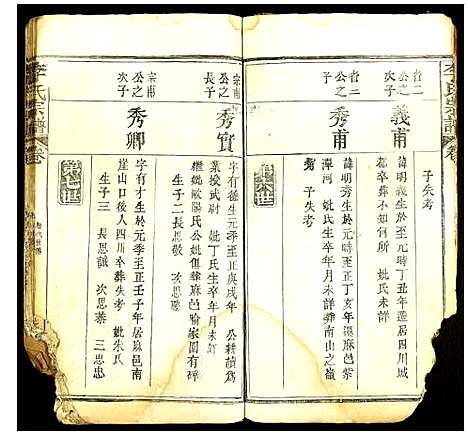 李氏宗譜
卷
者二
公之
次子
義甫
子失考
諱明義生於元時至元丁丑年遷居四川城
都卒葬不知何所 妣氏未詳
者二
公之
子
秀甫
諱明秀生於元時至正丁亥年遷麻邑紫
潭河 妣氏生卒年月未詳葬南山之嶺
子失考
世
宗甫
公之
長子
秀實
字有德生元季至正庚戌年 公耕讀爲
業授武尉 妣丁氏生卒年月未詳
繼妣歐陽氏公妣俱葬麻邑喻家園有碑
生子二長思聰 次思恭
宗甫
公之
次子
秀卿
世
字有才生於元季至正壬子年居麻邑南
崖山口後人四川卒葬失考 妣朱氏
生子三 長思誠 次思恭 三思忠
李氏宗譜
卷